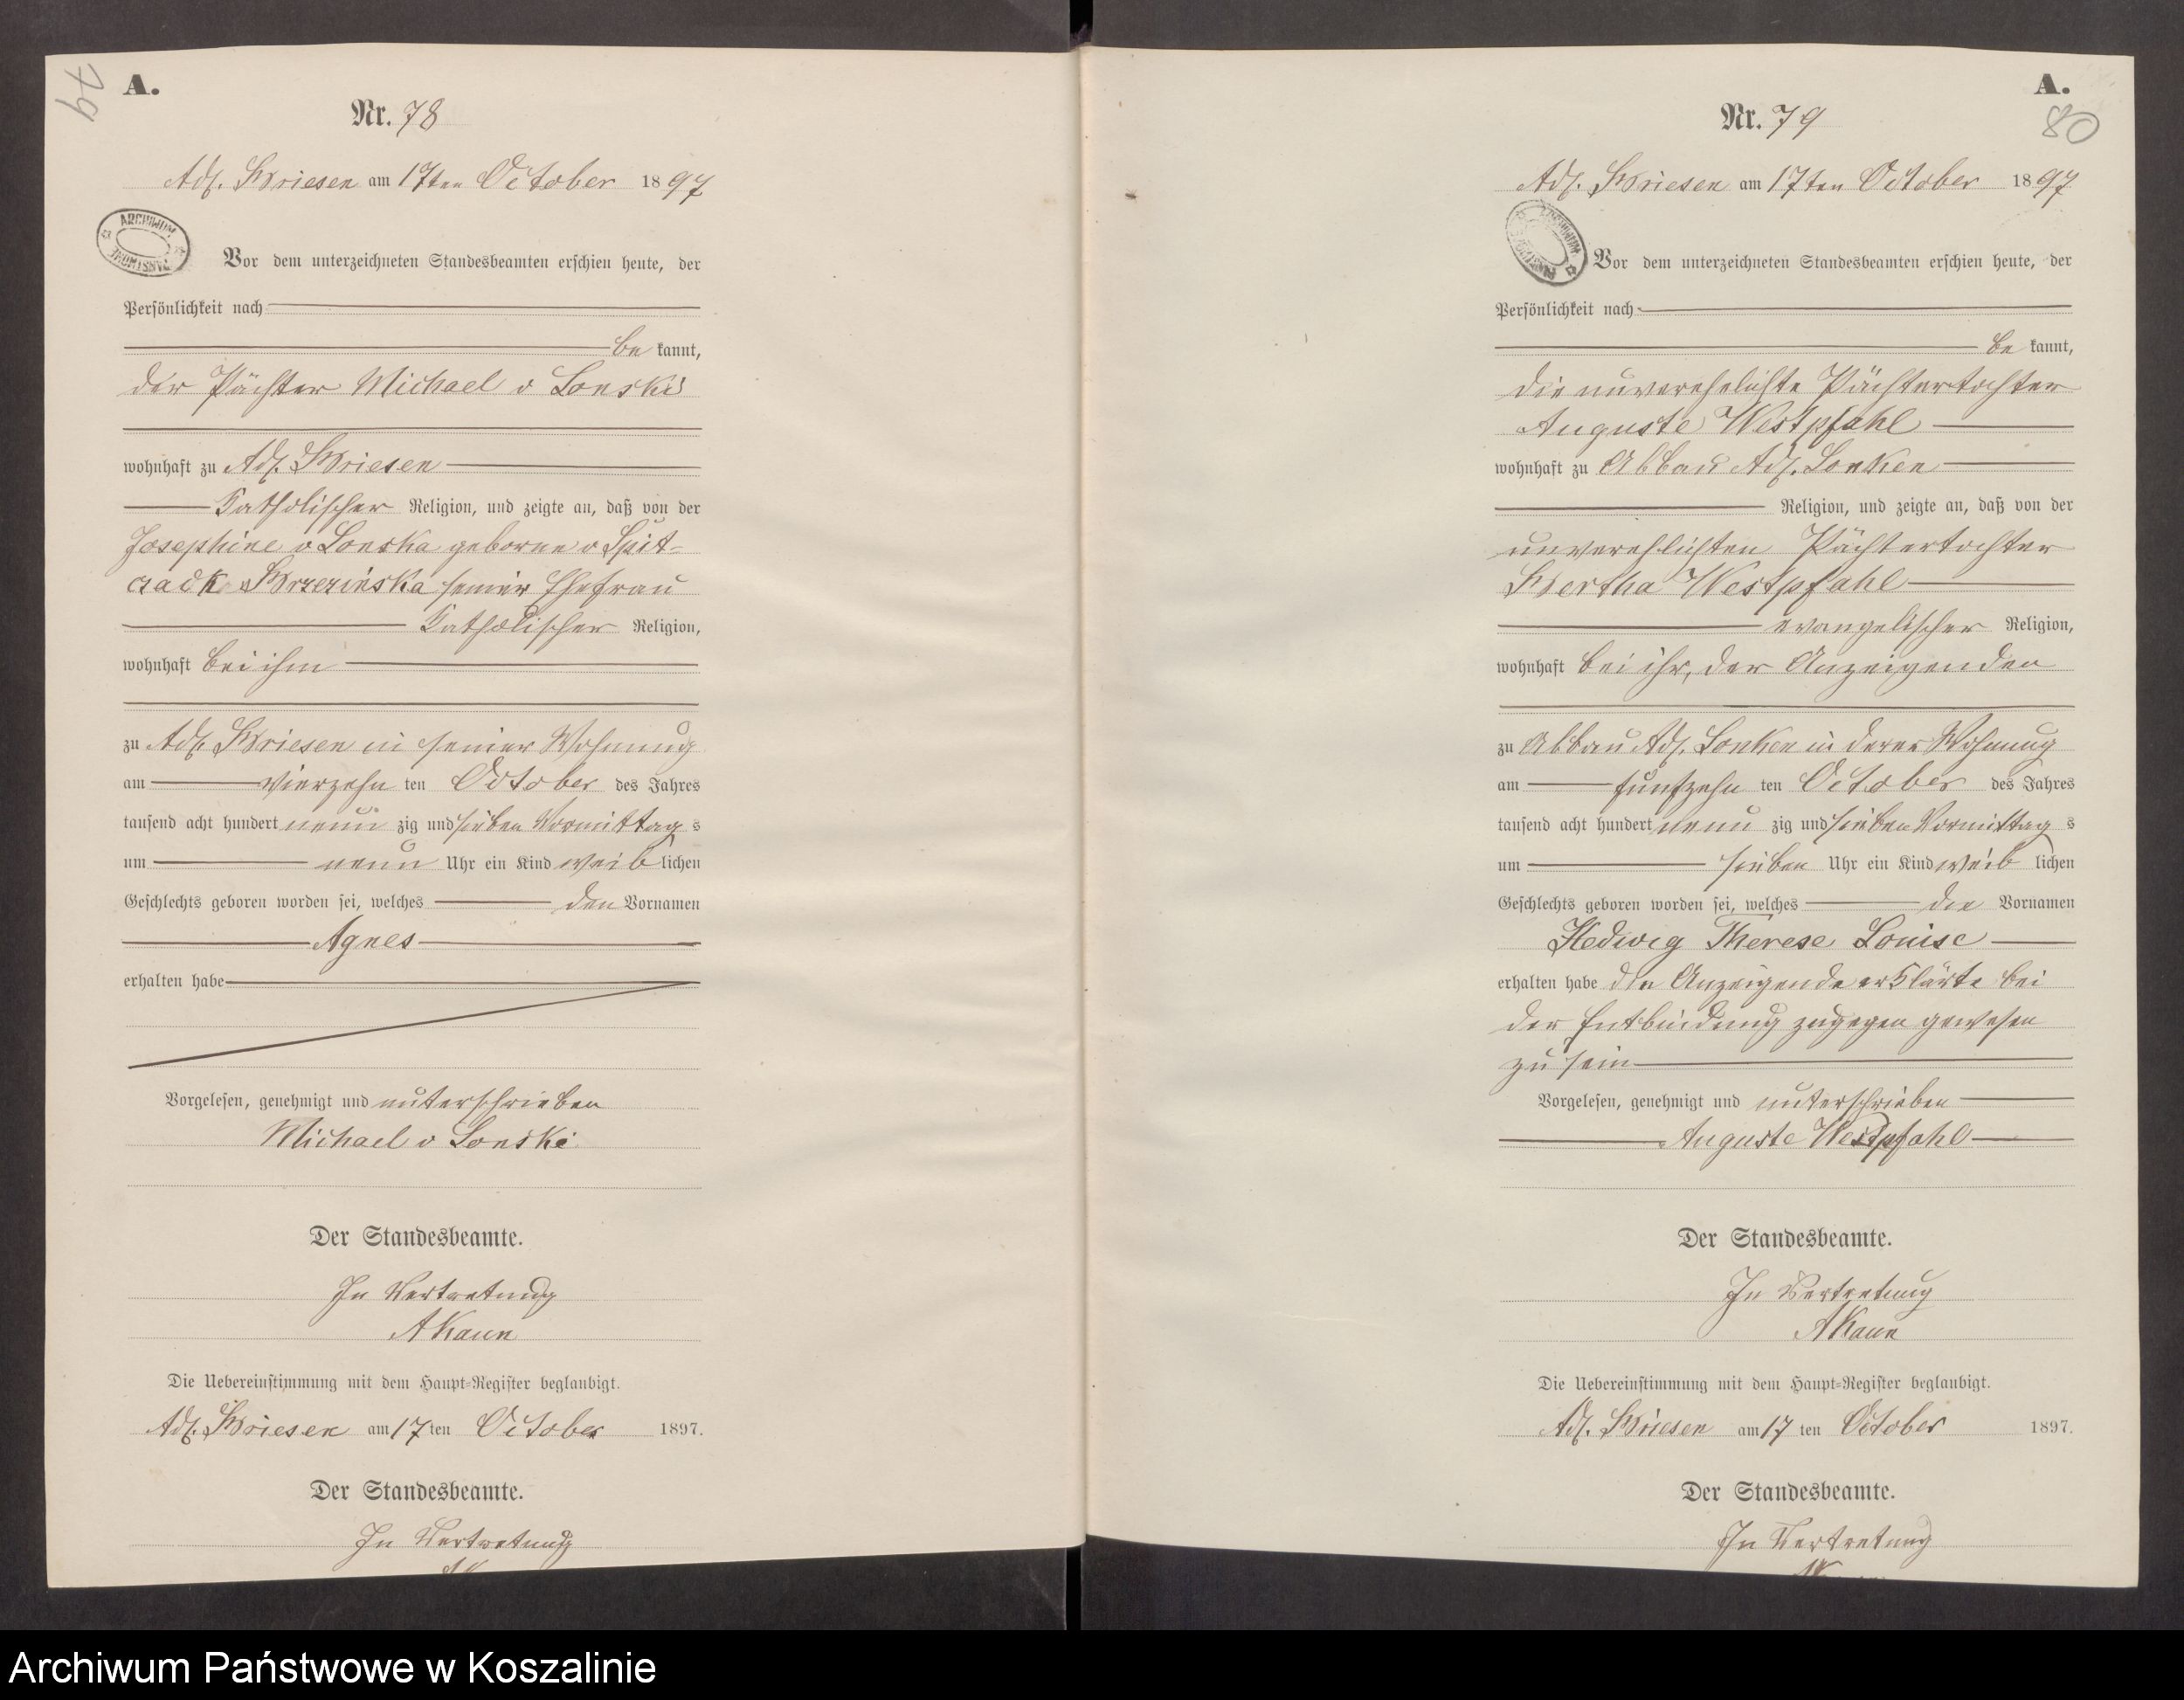 79
A.
Nr. 78
Adl. Briesen am 17ten October 1897
ARCHIWUM
PAŃSTWOWE
Vor dem unterzeichneten Standesbeamten erschien heute, der
Persönlichkeit nach
be kannt,
der Pächter Michael v Lonski
wohnhaft zu Adl. Briesen
Katholischer Religion, und zeigte an, daß von der
Josephine v Lonska geborne v Spit=
czack Brzezinska seiner Ehefrau
Katholischer Religion,
wohnhaft bei ihm
zu Adl. Briesen in seiner Wohnung
am vierzehn ten October des Jahres
tausend acht hundert neun zig und sieben Vormittag s
um neun Uhr ein Kind weib lichen
Geschlechts geboren worden sei, welches den Vornamen
Agnes
erhalten habe
Vorgelesen, genehmigt und unterschrieben
Michael v Lonski
Der Standesbeamte.
In Vertretung
A Kaun
Die Uebereinstimmung mit dem Haupt=Register beglaubigt.
Adl. Briesen am 17 ten October 1897.
Der Standesbeamte.
In Vertretung
A.
80
Nr. 79
Adl. Briesen am 17ten October 1897
ARCHIWUM
PAŃSTWOWE
Vor dem unterzeichneten Standesbeamten erschien heute, der
Persönlichkeit nach
be kannt,
die unverehelichte Pächtertochter
Auguste Westpfahl
wohnhaft zu Abbau Adl. Lonken
Religion, und zeigte an, daß von der
unverehlichten Pächtertochter
Bertha Westpfahl
evangelischer Religion,
wohnhaft bei ihr, der Anzeigenden
zu Abbau Adl. Lonken in derer Wohnung
am fünfzehn ten October des Jahres
tausend acht hundert neun zig und sieben Vormittag s
um sieben Uhr ein Kind weib lichen
Geschlechts geboren worden sei, welches die Vornamen
Hedwig Therese Louise
erhalten habe die Anzeigende erklärte bei
der Entbindung zugegen gewesen
zu sein
Vorgelesen, genehmigt und unterschrieben
Auguste Westpfahl
Der Standesbeamte.
In Vertretung
A Kaun
Die Uebereinstimmung mit dem Haupt=Register beglaubigt.
Adl. Briesen am 17 ten October 1897.
Der Standesbeamte.
In Vertretung
Archiwum Państwowe w Koszalinie